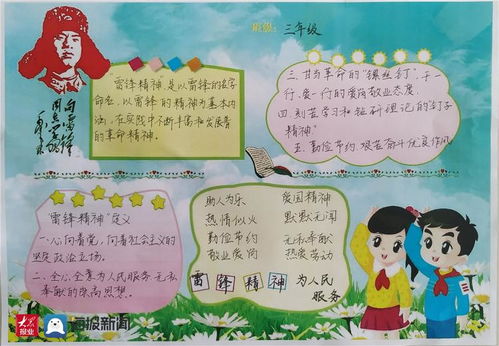 班级：三年级
向雷锋
同志学习
毛泽东
雷锋精神，是以雷锋的名字
命名，以雷锋的精神为基本内
涵，在实践中不断丰富和发展着
的革命精神。
三、甘当革命的"镙丝钉"，干一
行、爱一行的爱岗敬业态度
四、刻苦学习和钻研理论的"钉子
精神"
五、勤俭节约 艰苦奋斗优良作风
"雷锋精神"定义
一、心向着党，向着社会主义的
坚定政治立场。
二、全心全意为人民服务 无私
奉献的崇高思想。
助人为乐 爱国精神
热情似火 默默无闻
勤俭节约 无私奉献
敬业爱岗 热爱劳动
雷锋精神 为人民
服务
大众报业
海报新闻